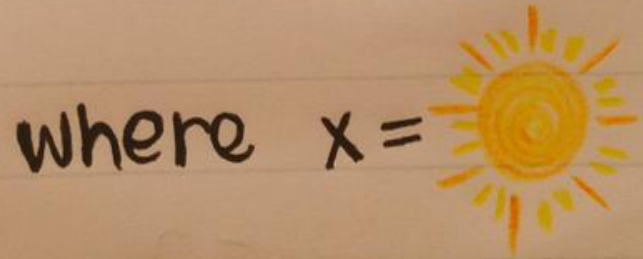 where x =